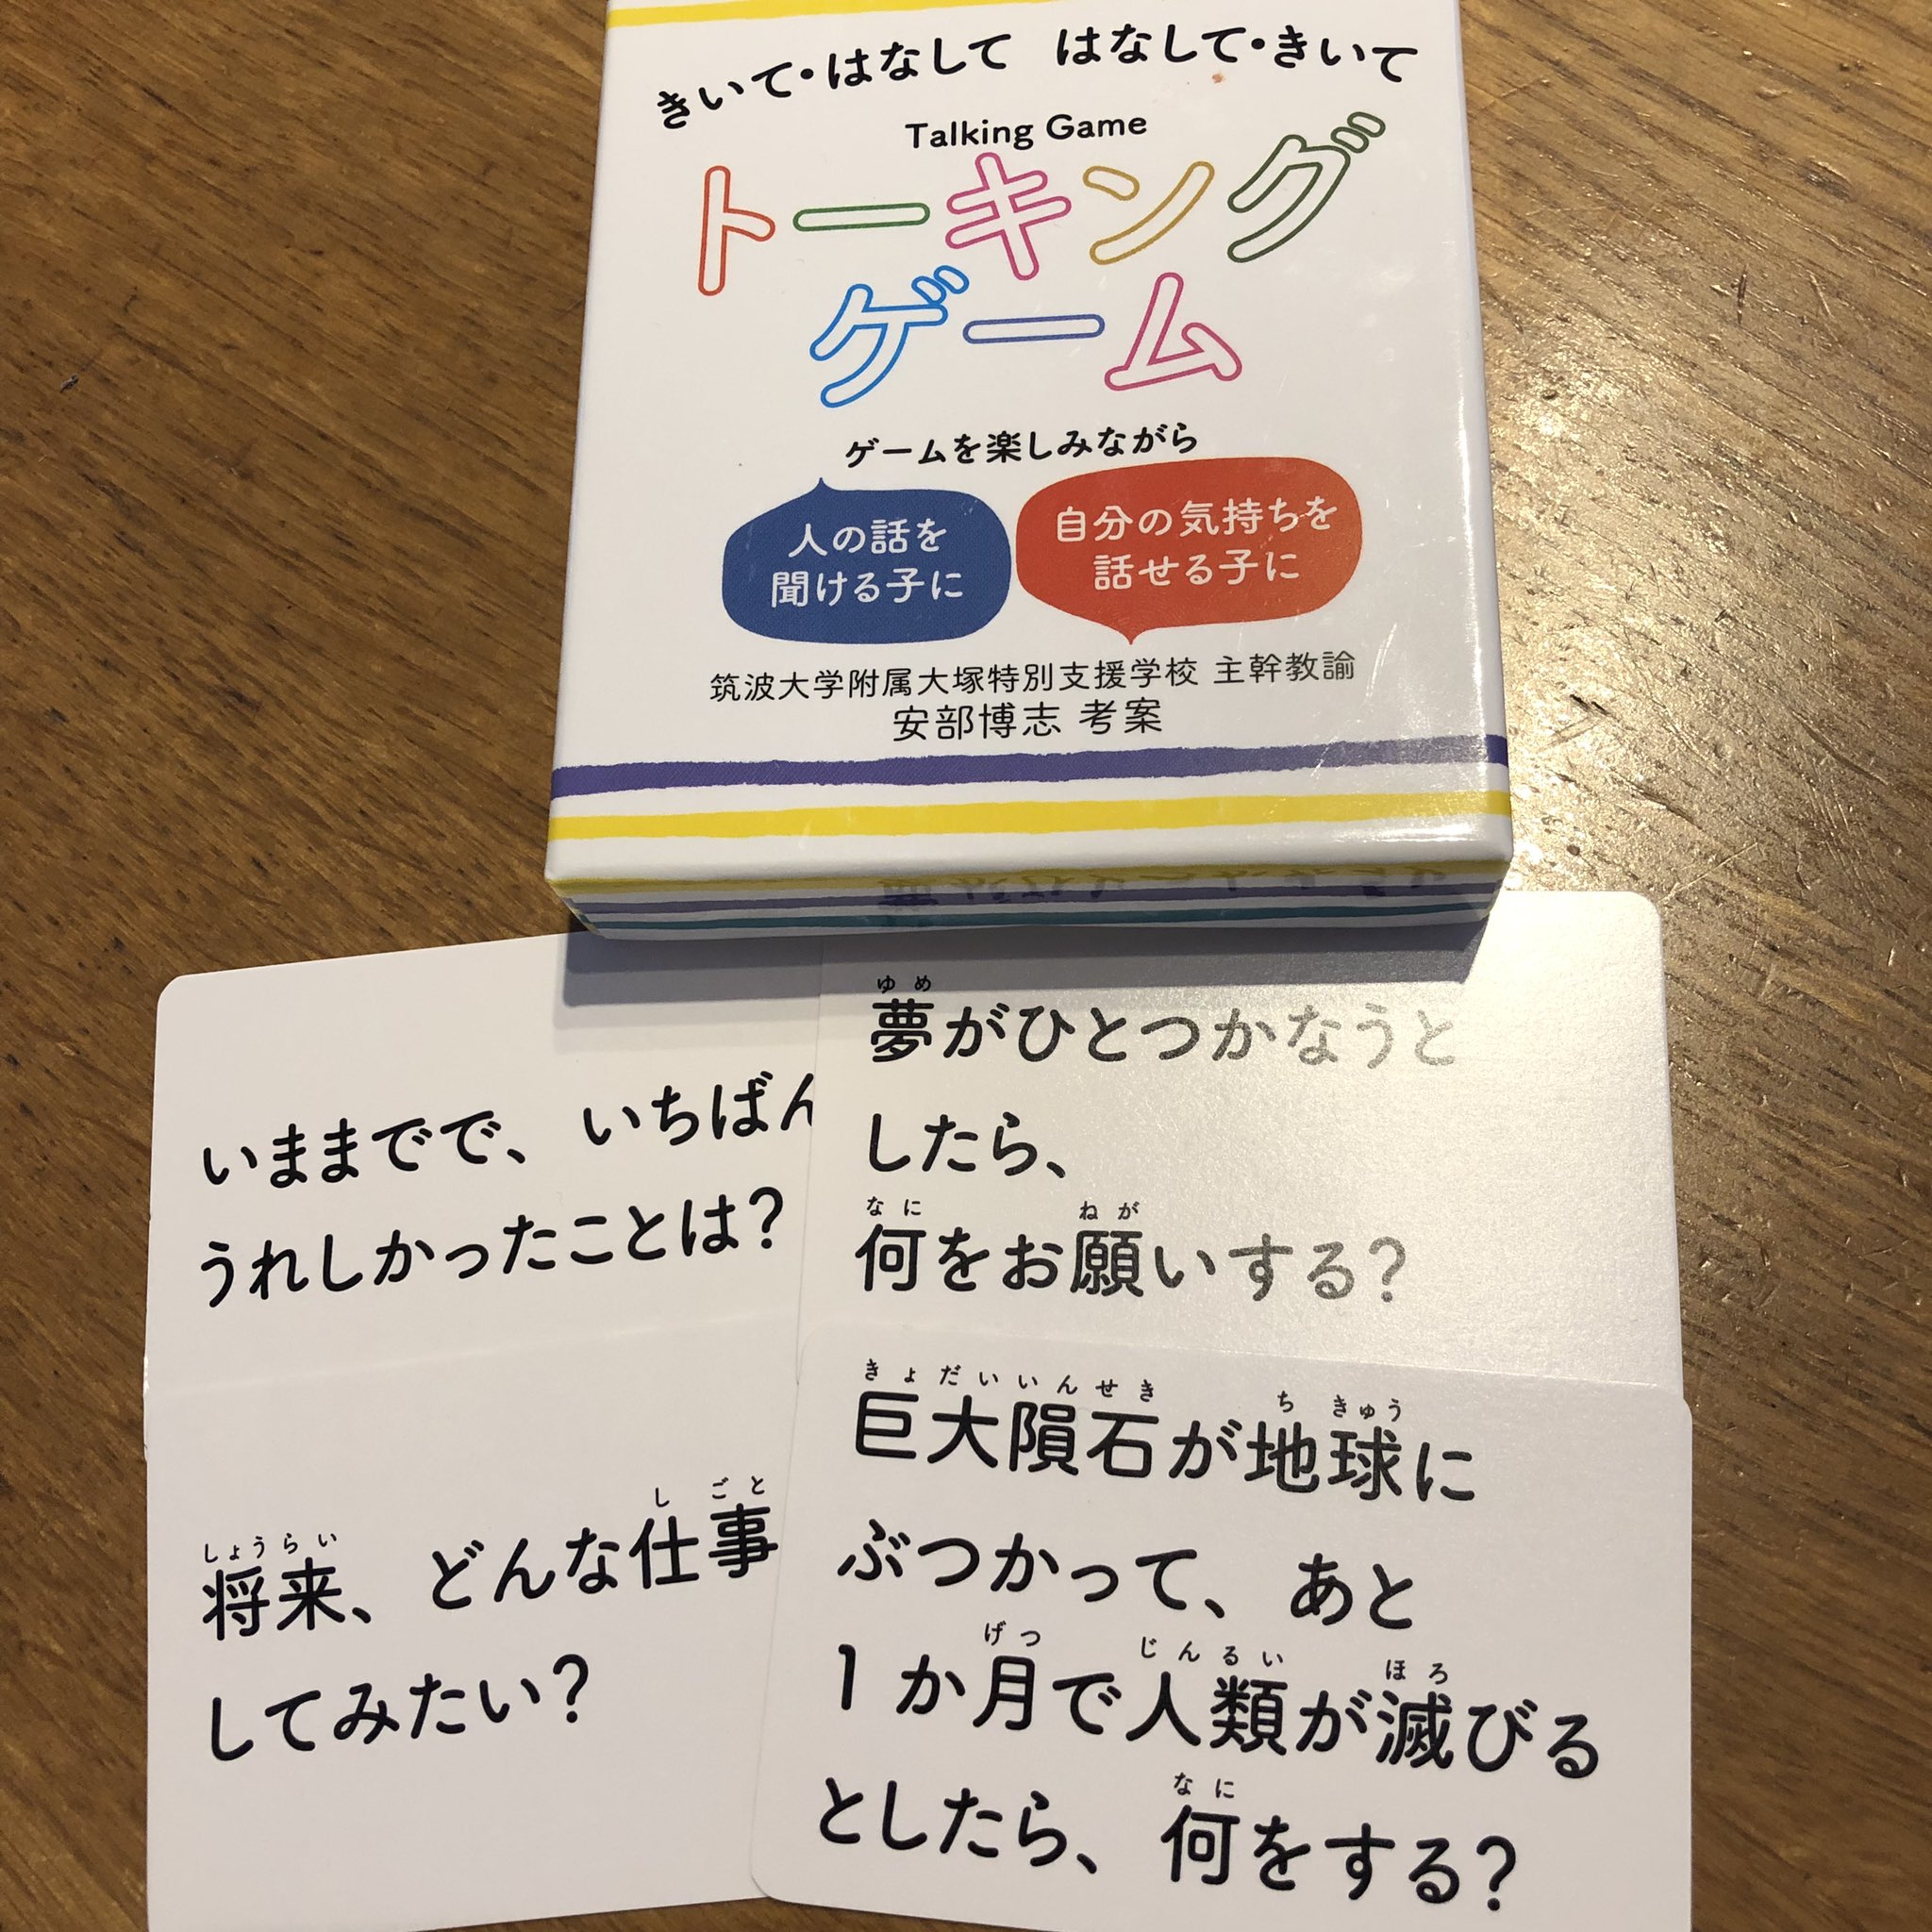 きいて・はなして はなして・きいて
Talking Game
トーキング
ゲーム
ゲームを楽しみながら
人の話を
聞ける子に
自分の気持ちを
話せる子に
筑波大学附属大塚特別支援学校 主幹教諭
安部博志 考案
いままでで、いちばん
うれしかったことは?
ゆめ
夢がひとつかなうと
したら、
なに ねが
何をお願いする?
しょうらい しごと
将来、どんな仕事
してみたい?
きょだいいんせき ちきゅう
巨大隕石が地球に
ぶつかって、あと
げつ じんるい ほろ
1か月で人類が滅びる
なに
としたら、何をする?